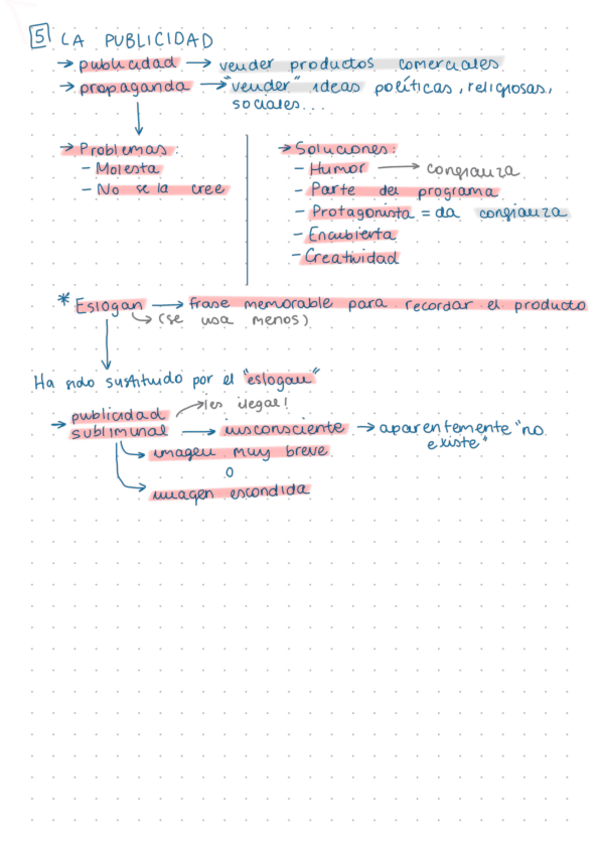 5 LA PUBLICIDAD
→ publicidad → vender productos comerciales
→ propaganda → "vender" ideas políticas, religiosas,
sociales...
→ Problemas:
- Molesta
- No se la cree
→ Soluciones:
- Humor → confianza
- Parte del programa
- Protagonista = da confianza
- Encubierta
- Creatividad
* Eslogan → frase memorable para recordar el producto
↳ (se usa menos)
Ha sido sustituido por el "eslogan"
→ publicidad subliminal → insconsciente → aparentemente "no existe"
→ ¡es ilegal!
→ imagen muy breve
o
→ imagen escondida